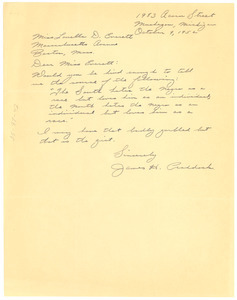 1983 Street
Muskegon, Michigan
October 9, 19
Miss Luella D. Everett
Massachusetts Avenue
Boston, Mass
Dear Miss Everett:
Would you be kind enough to tell
me the source of the following:
"The South hates the Negro as a
race but loves him as an individual,
the North hates the Negro as an
individual but loves him as a
race."
I may have that badly garbled but
that is the gist.
Sincerely
James H.